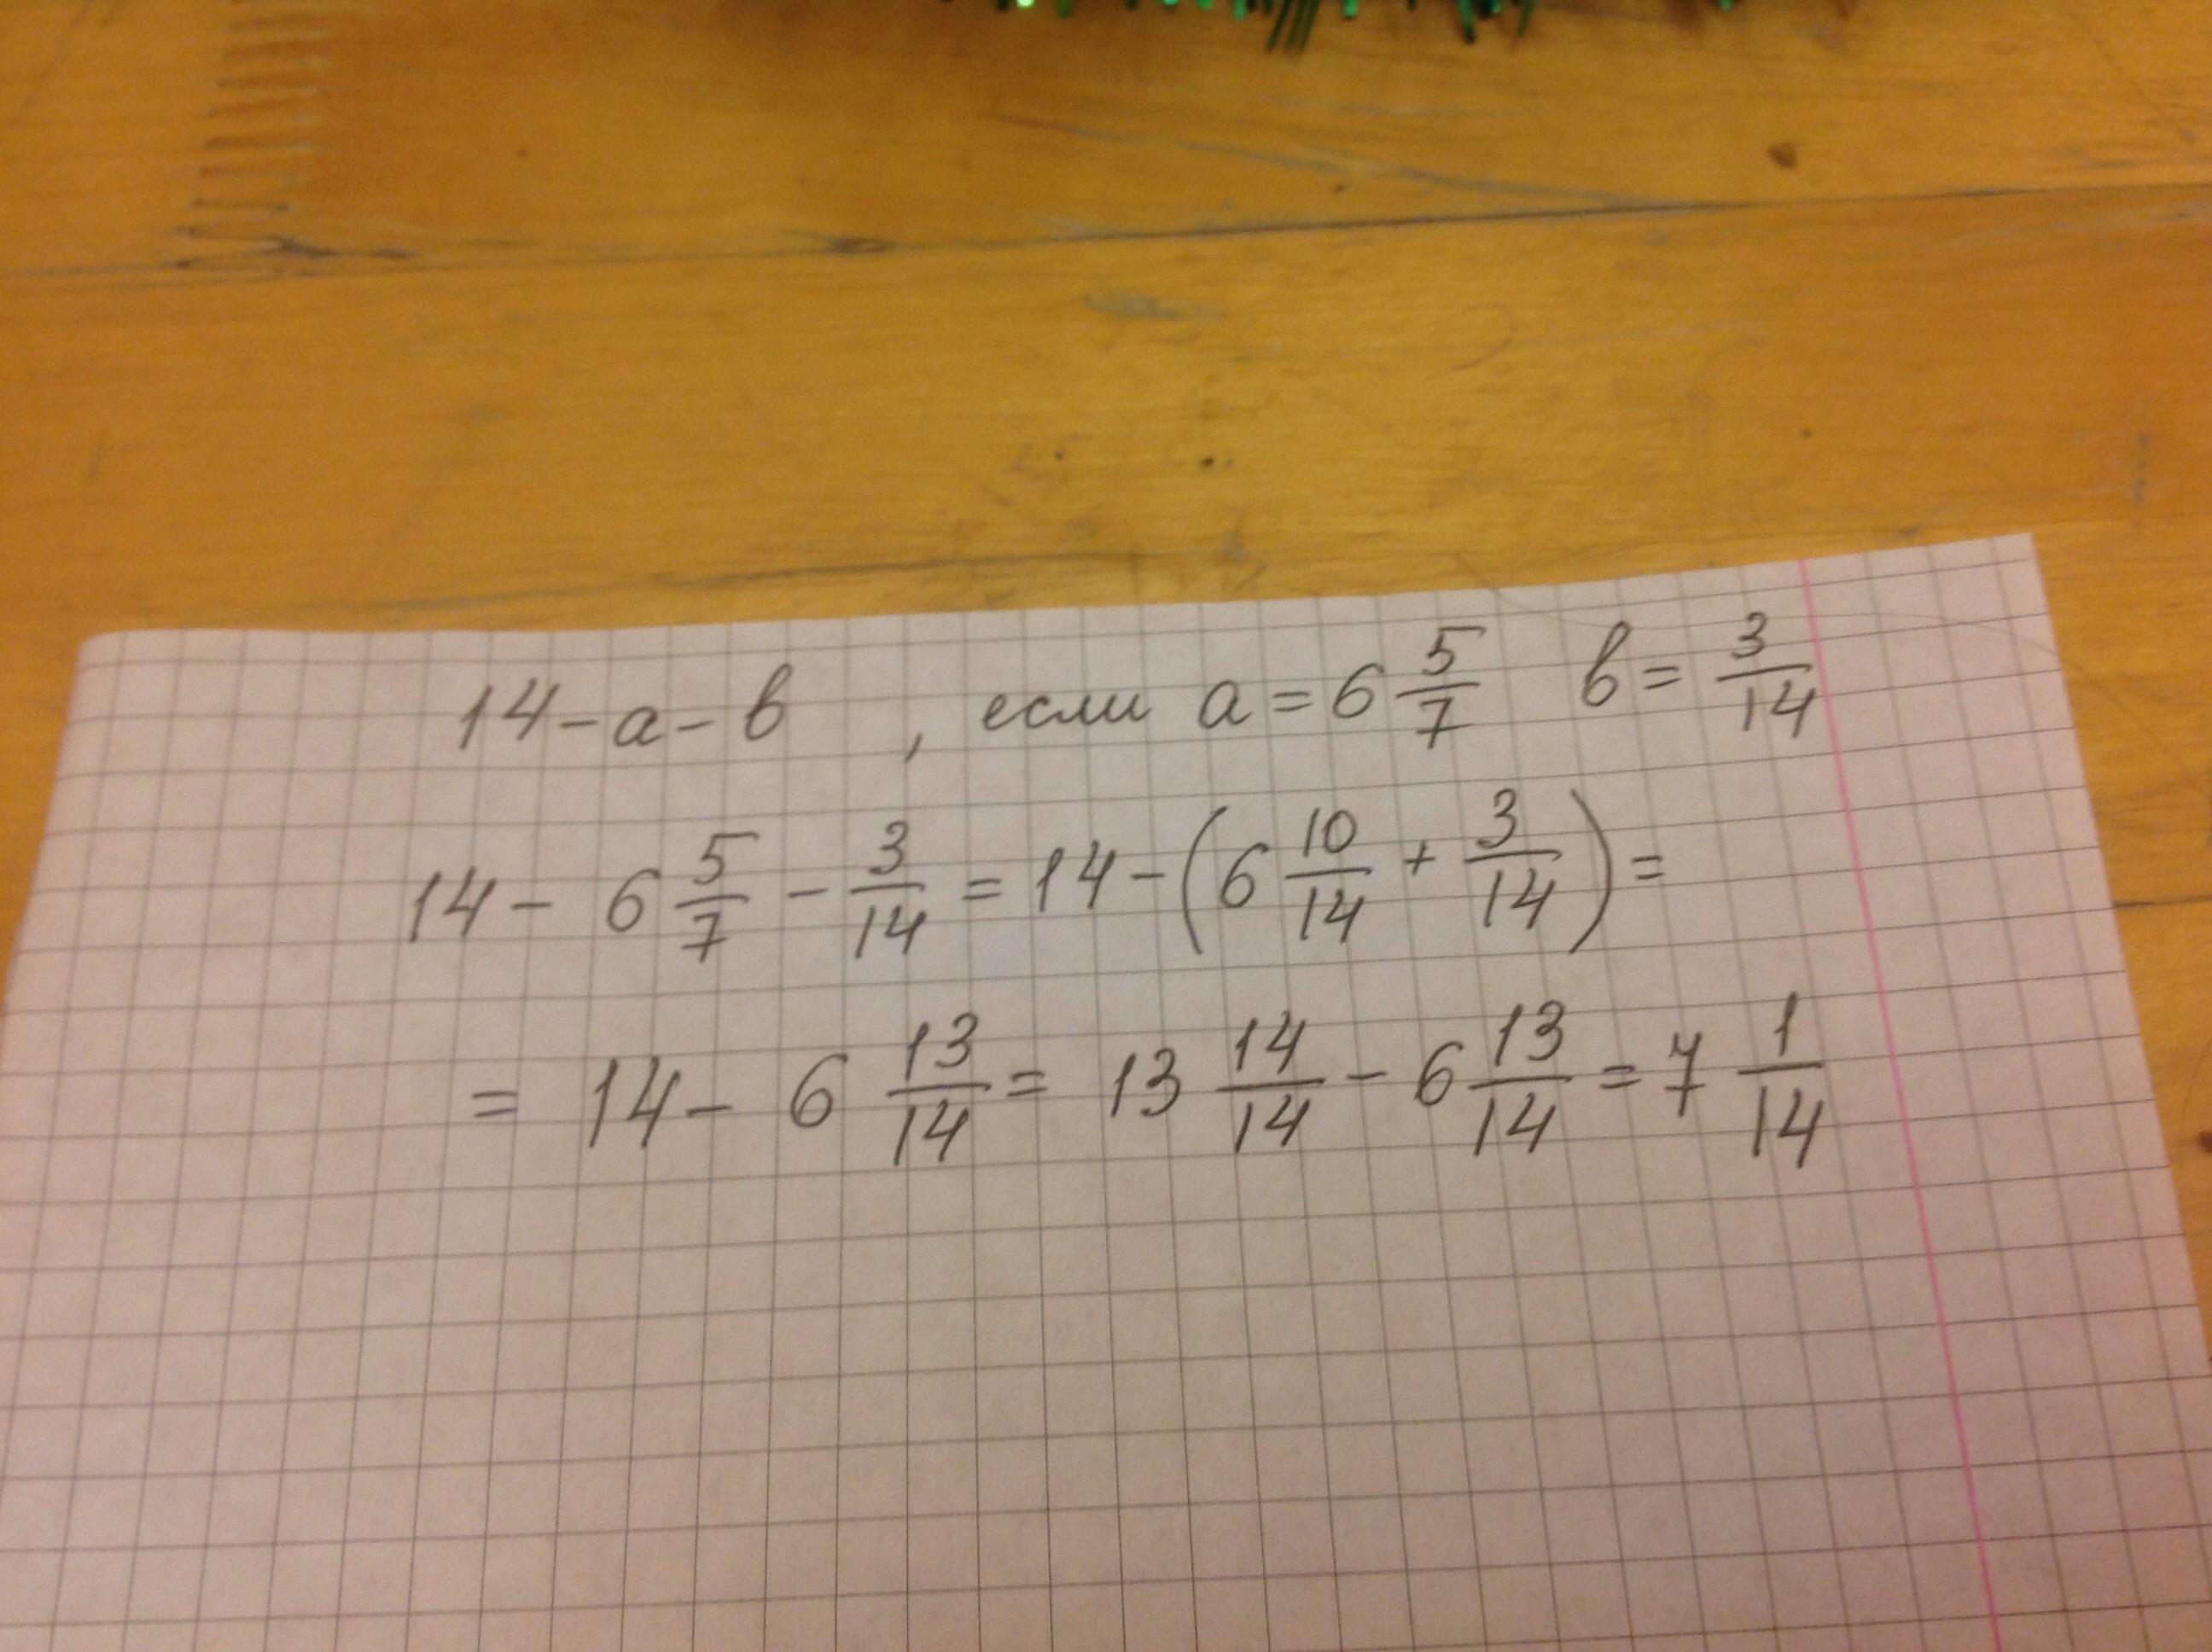 14 - a - b , если a = 6 5/7 b = 3/14
14 - 6 5/7 - 3/14 = 14 - (6 10/14 + 3/14) =
= 14 - 6 13/14 = 13 14/14 - 6 13/14 = 7 1/14